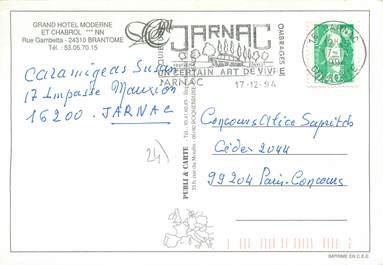 GRAND HOTEL MODERNE
ET CHABROL *** NN
Rue Gambetta - 24310 BRANTOME
Tél. : 53.05.70.15
JARNAC
OMBRAGES
UN CERTAIN ART DE VIVRE
JARNAC
17-12-94
16 JARNAC
Caramigeas Suzon
17 Impasse Mauxion
16200 - JARNAC
24)
PUBLI & CARTE
Concours Alice Sapritch
Cédex 2044
99204 Paris-Concours
IMPRIME EN C.E.E.